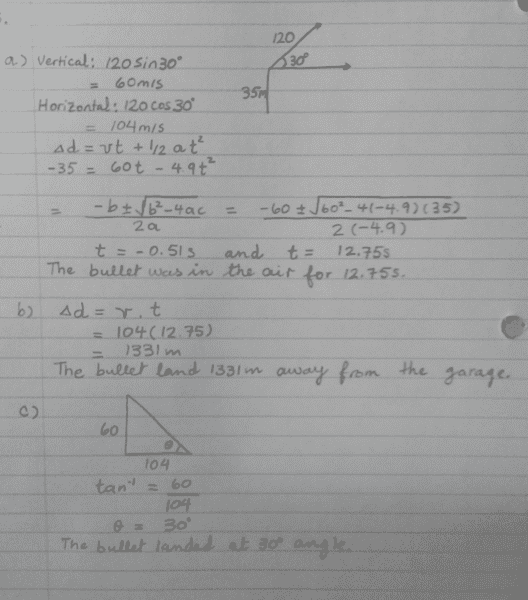 120
30°
35m
a) Vertical: 120 sin30°
= 60m/s
Horizontal: 120 cos 30°
= 104m/s
Δd = vt + 1/2 at²
-35 = 60t - 4.9t²
= -b±√b²-4ac / 2a = -60 ± √60²-4(-4.9)(35) / 2(-4.9)
t = -0.51s and t = 12.75s
The bullet was in the air for 12.75s.
b) Δd = v. t
= 104(12.75)
= 1331 m
The bullet land 1331m away from the garage.
c)
60
θ
104
tan⁻¹ = 60 / 104
θ = 30°
The bullet landed at 30° angle.